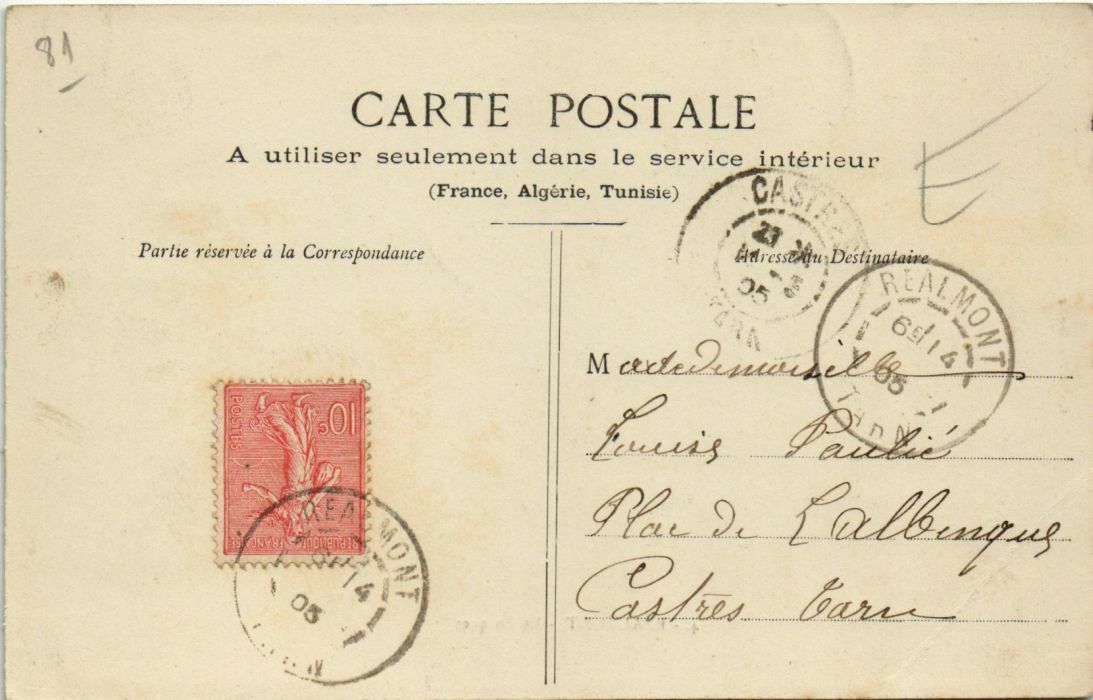 81
CARTE POSTALE
A utiliser seulement dans le service intérieur
(France, Algérie, Tunisie)
E
Partie réservée à la Correspondance
Adresse du Destinataire
CASTRES
23
05
TARN
REALMONT
14
05
TARN
Mademoiselle
Louise Paulié
Place de Lalbenque
Castrès Tarn
10c
POSTES
REPUBLIQUE FRANCAISE
REALMONT
14
05